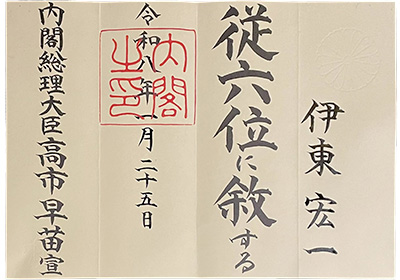 伊東宏一
従六位に敘する
令和八年一月二十五日
内閣之印
内閣総理大臣高市早苗宣